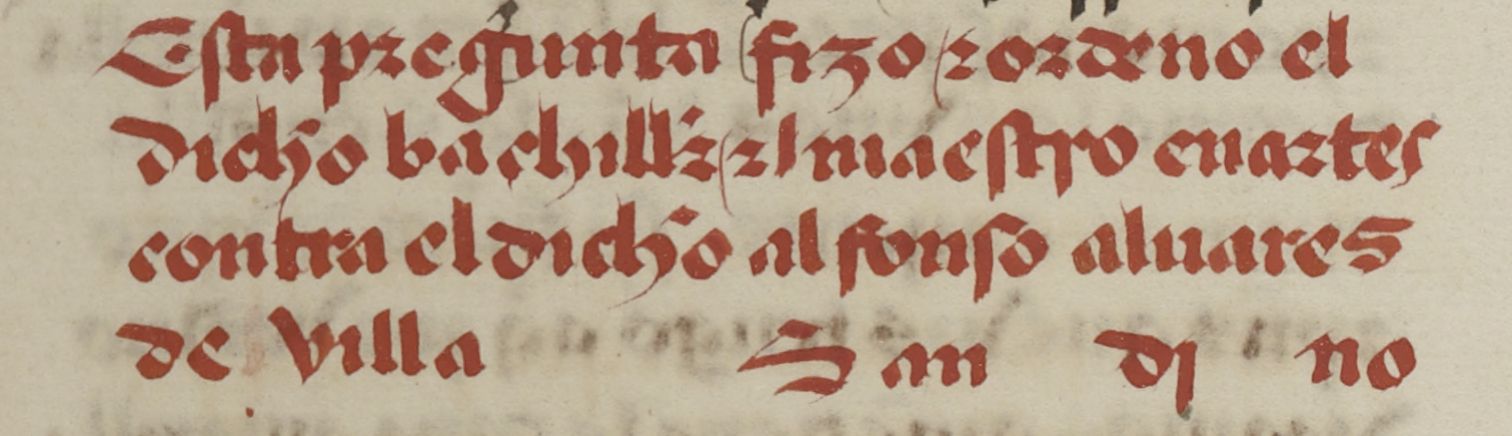 Esta pregunta fizo ⁊ ordeno el
dicho bachiller ⁊ maestro en artes
contra el dicho alfonso aluares
de Villa San di no